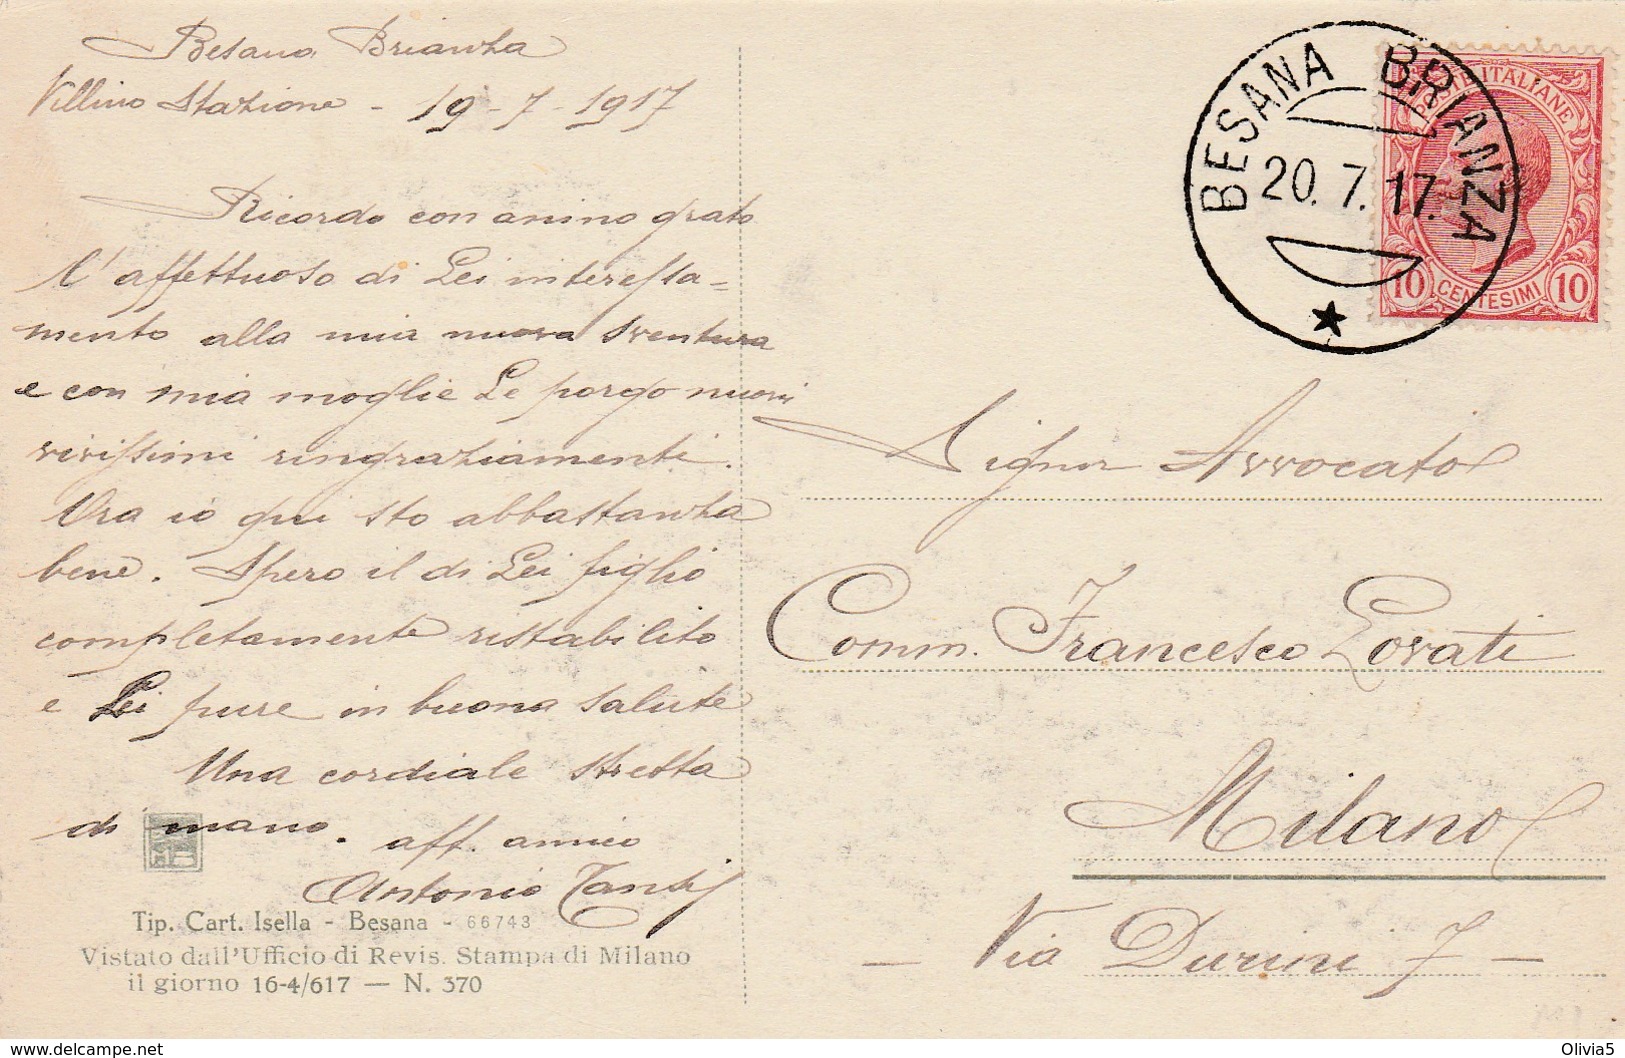 Besana Brianza
Villino Stazione - 19-7-1917
Ricordo con animo grato
l'affettuoso di Lei interessa=
mento alla mia nuova sventura
e con mia moglie Le porgo nuovi
vivissimi ringraziamenti.
Ora io qui sto abbastanza
bene. Spero il di Lei figlio
completamente ristabilito
e Lei pure in buona salute
Una cordiale stretta
di mano. aff. amico
Antonio
Tip. Cart. Isella - Besana - 66743
Vistato dall'Ufficio di Revis. Stampa di Milano
il giorno 16-4/617 — N. 370
BESANA BRIANZA
20.7.17.
POSTE ITALIANE
10 CENTESIMI 10
Signor Avvocato
Comm. Francesco Lovati
Milano
— Via Durini 7 —
delcampe.net
Olivia5